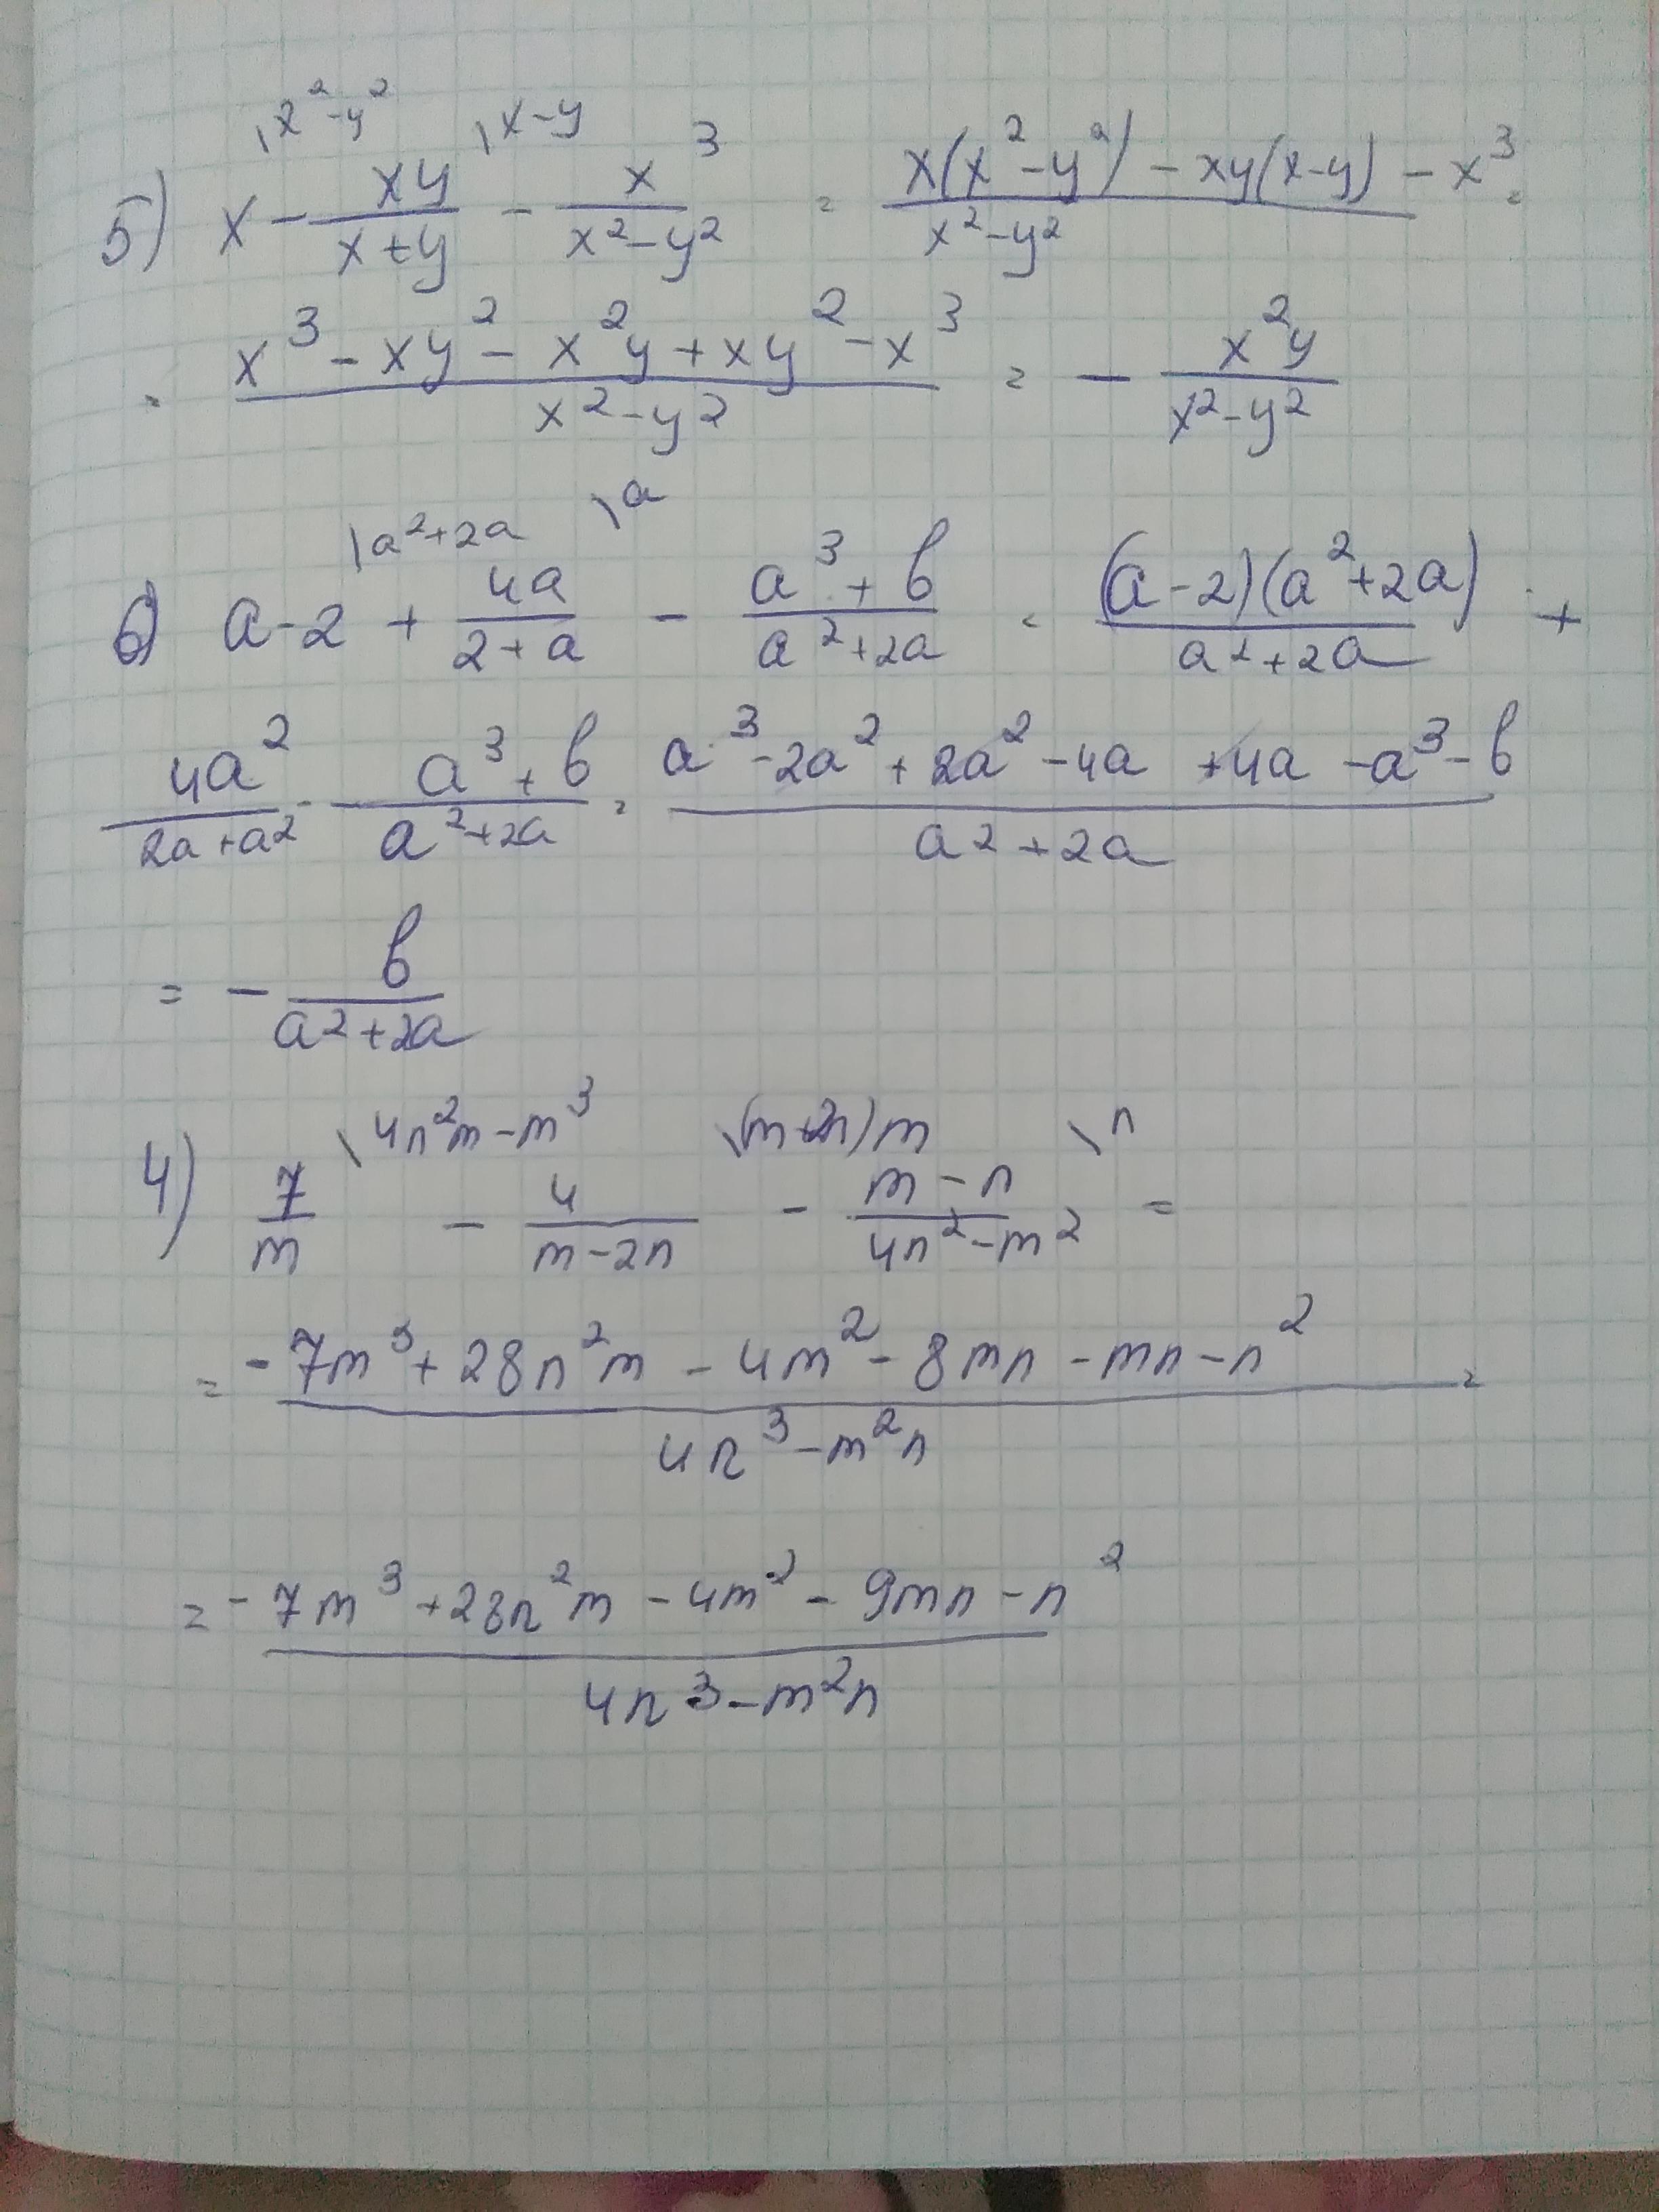 \x²-y² \x-y
5) x - xy/(x+y) - x³/(x²-y²) = (x(x²-y²) - xy(x-y) - x³)/(x²-y²) =
= (x³ - xy² - x²y + xy² - x³)/(x²-y²) = - x²y/(x²-y²)
\a²+2a \a
6) a-2 + 4a/(2+a) - (a³+b)/(a²+2a) = (a-2)(a²+2a)/(a²+2a) +
4a²/(2a+a²) - (a³+b)/(a²+2a) = (a³-2a²+2a²-4a+4a-a³-b)/(a²+2a)
= - b/(a²+2a)
\4n²m-m³ \(m+2n)m \n
4) 7/m - 4/(m-2n) - (m-n)/(4n²-m²) =
= (-7m³+28n²m-4m²-8mn-mn-n²)/(4n³-m²n) =
= (-7m³+28n²m-4m²-9mn-n²)/(4n³-m²n)